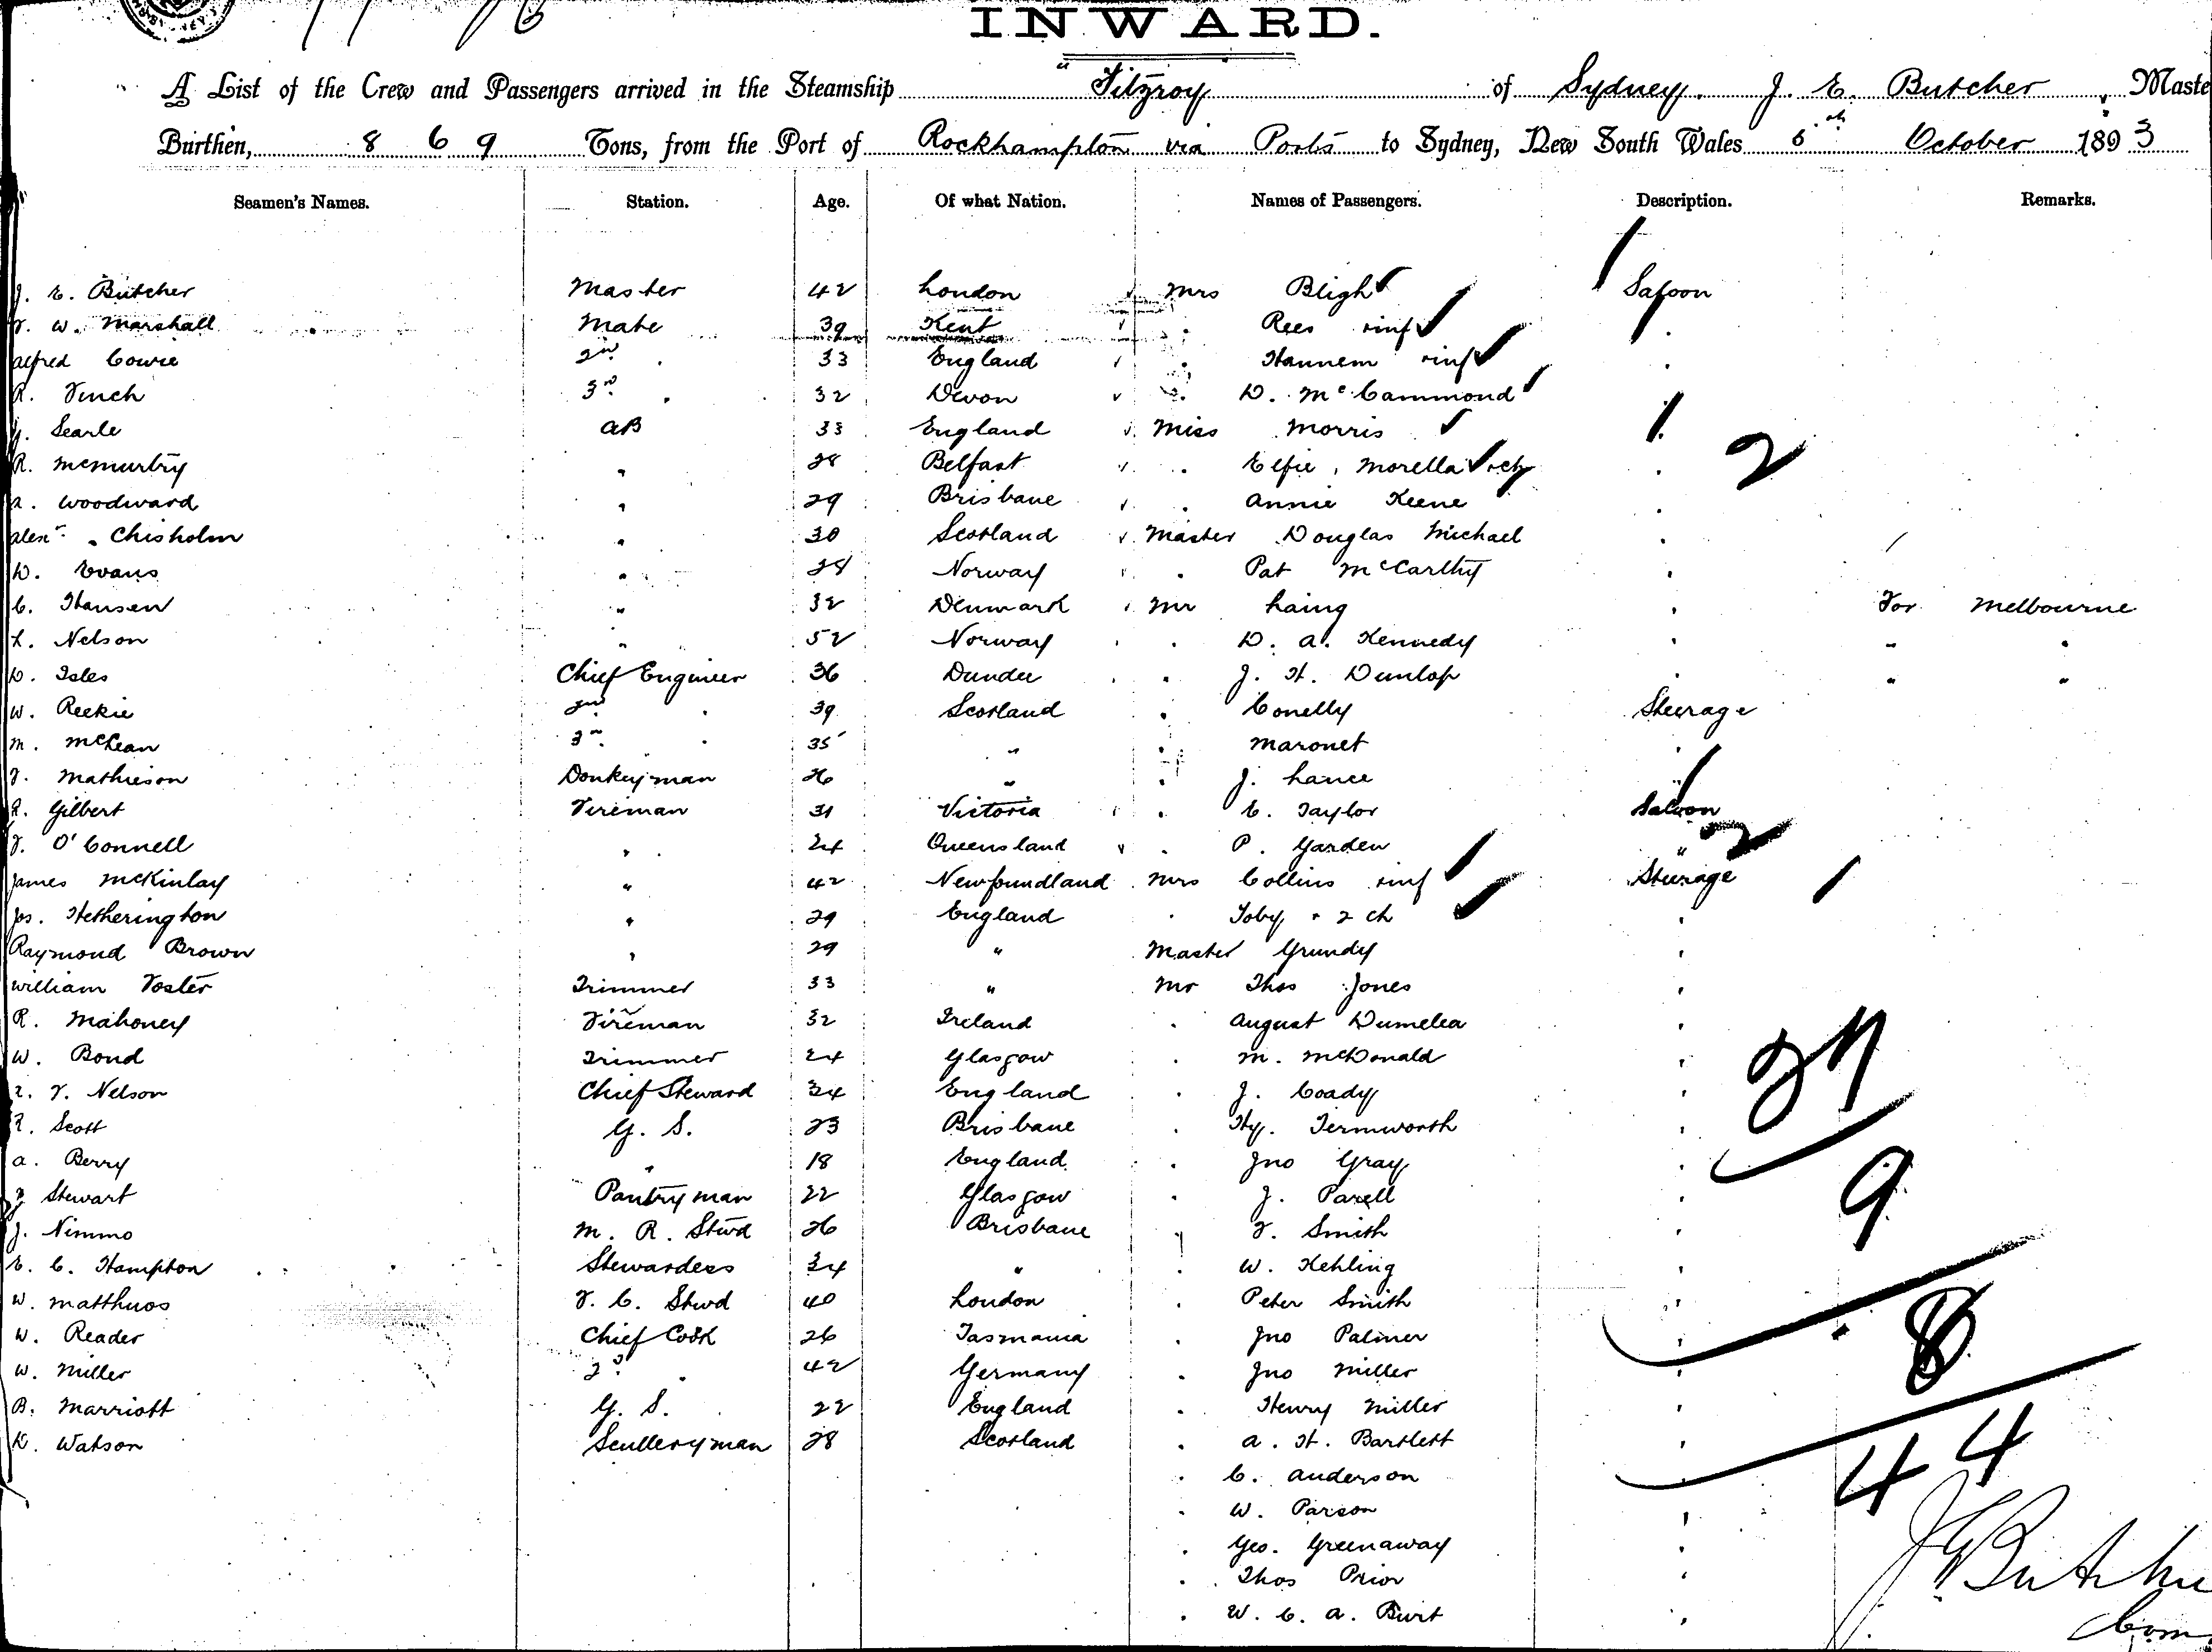 INWARD.
A List of the Crew and Passengers arrived in the Steamship "Fitzroy of Sydney. J. E. Butcher, Maste
Burthen, 869 Tons, from the Port of Rockhampton via Ports to Sydney, New South Wales 6th October 1893
Seamen's Names. Station. Age. Of what Nation. Names of Passengers. Description. Remarks.
J. E. Butcher Master 42 London Mrs Bligh Saloon
W. Marshall Mate 39 Kent " Rees & inf "
Alfred Cowie 2nd " 33 England " Hannem & inf "
R. Finch 3rd " 32 Devon " D. McCammond
J. Searle AB 33 England Miss Morris "
R. McMurtry " 28 Belfast " Elfie, Morella & ch " 2
A. Woodward " 29 Brisbane " Annie Keene "
Alexr. Chisholm " 30 Scotland Master Douglas Michael "
D. Evans " 28 Norway " Pat McCarthy "
C. Hansen " 32 Denmark Mr Laing " For Melbourne
L. Nelson " 52 Norway " D. A. Kennedy " " "
D. Isles Chief Engineer 36 Dundee " J. H. Dunlop " " "
W. Reekie 2nd " 39 Scotland " Conelly Steerage
M. McLean 3rd " 35 " " Maronet "
J. Mathieson Donkeyman 26 " " J. Lance "
R. Gilbert Fireman 31 Victoria " C. Taylor Saloon
J. O'Connell " 24 Queensland " P. Garden " 2
James McKinlay " 42 Newfoundland Mrs Collins & inf Steerage
Jos. Hetherington " 29 England " Toby & 2 ch "
Raymond Brown " 29 " Master Grundy "
William Foster Trimmer 33 " Mr Thos Jones "
R. Mahoney Fireman 32 Ireland " August Dumelea "
W. Bond Trimmer 24 Glasgow " M. McDonald " 27
F. Nelson Chief Steward 34 England " J. Coady "
Scott G. S. 23 Brisbane " Hy. Termworth "
A. Berry " 18 England " Jno Gray " 9
Stewart Pantryman 22 Glasgow " J. Parell "
J. Nimmo M. R. Stwd 26 Brisbane " F. Smith "
E. C. Hampton Stewardess 34 " " W. Kehling "
W. Matthuos F. C. Stwd 40 London " Peter Smith " 8
W. Reader Chief Cook 26 Tasmania " Jno Palmer "
W. Miller 2nd " 42 Germany " Jno Miller "
B. Marriott G. S. 22 England " Henry Miller "
D. Watson Sculleryman 28 Scotland " A. H. Bartlett " 44
" C. Anderson
" W. Parson "
" Geo. Greenaway "
" Thos Prior "
" W. C. A. Burt "
J E Butche
Com